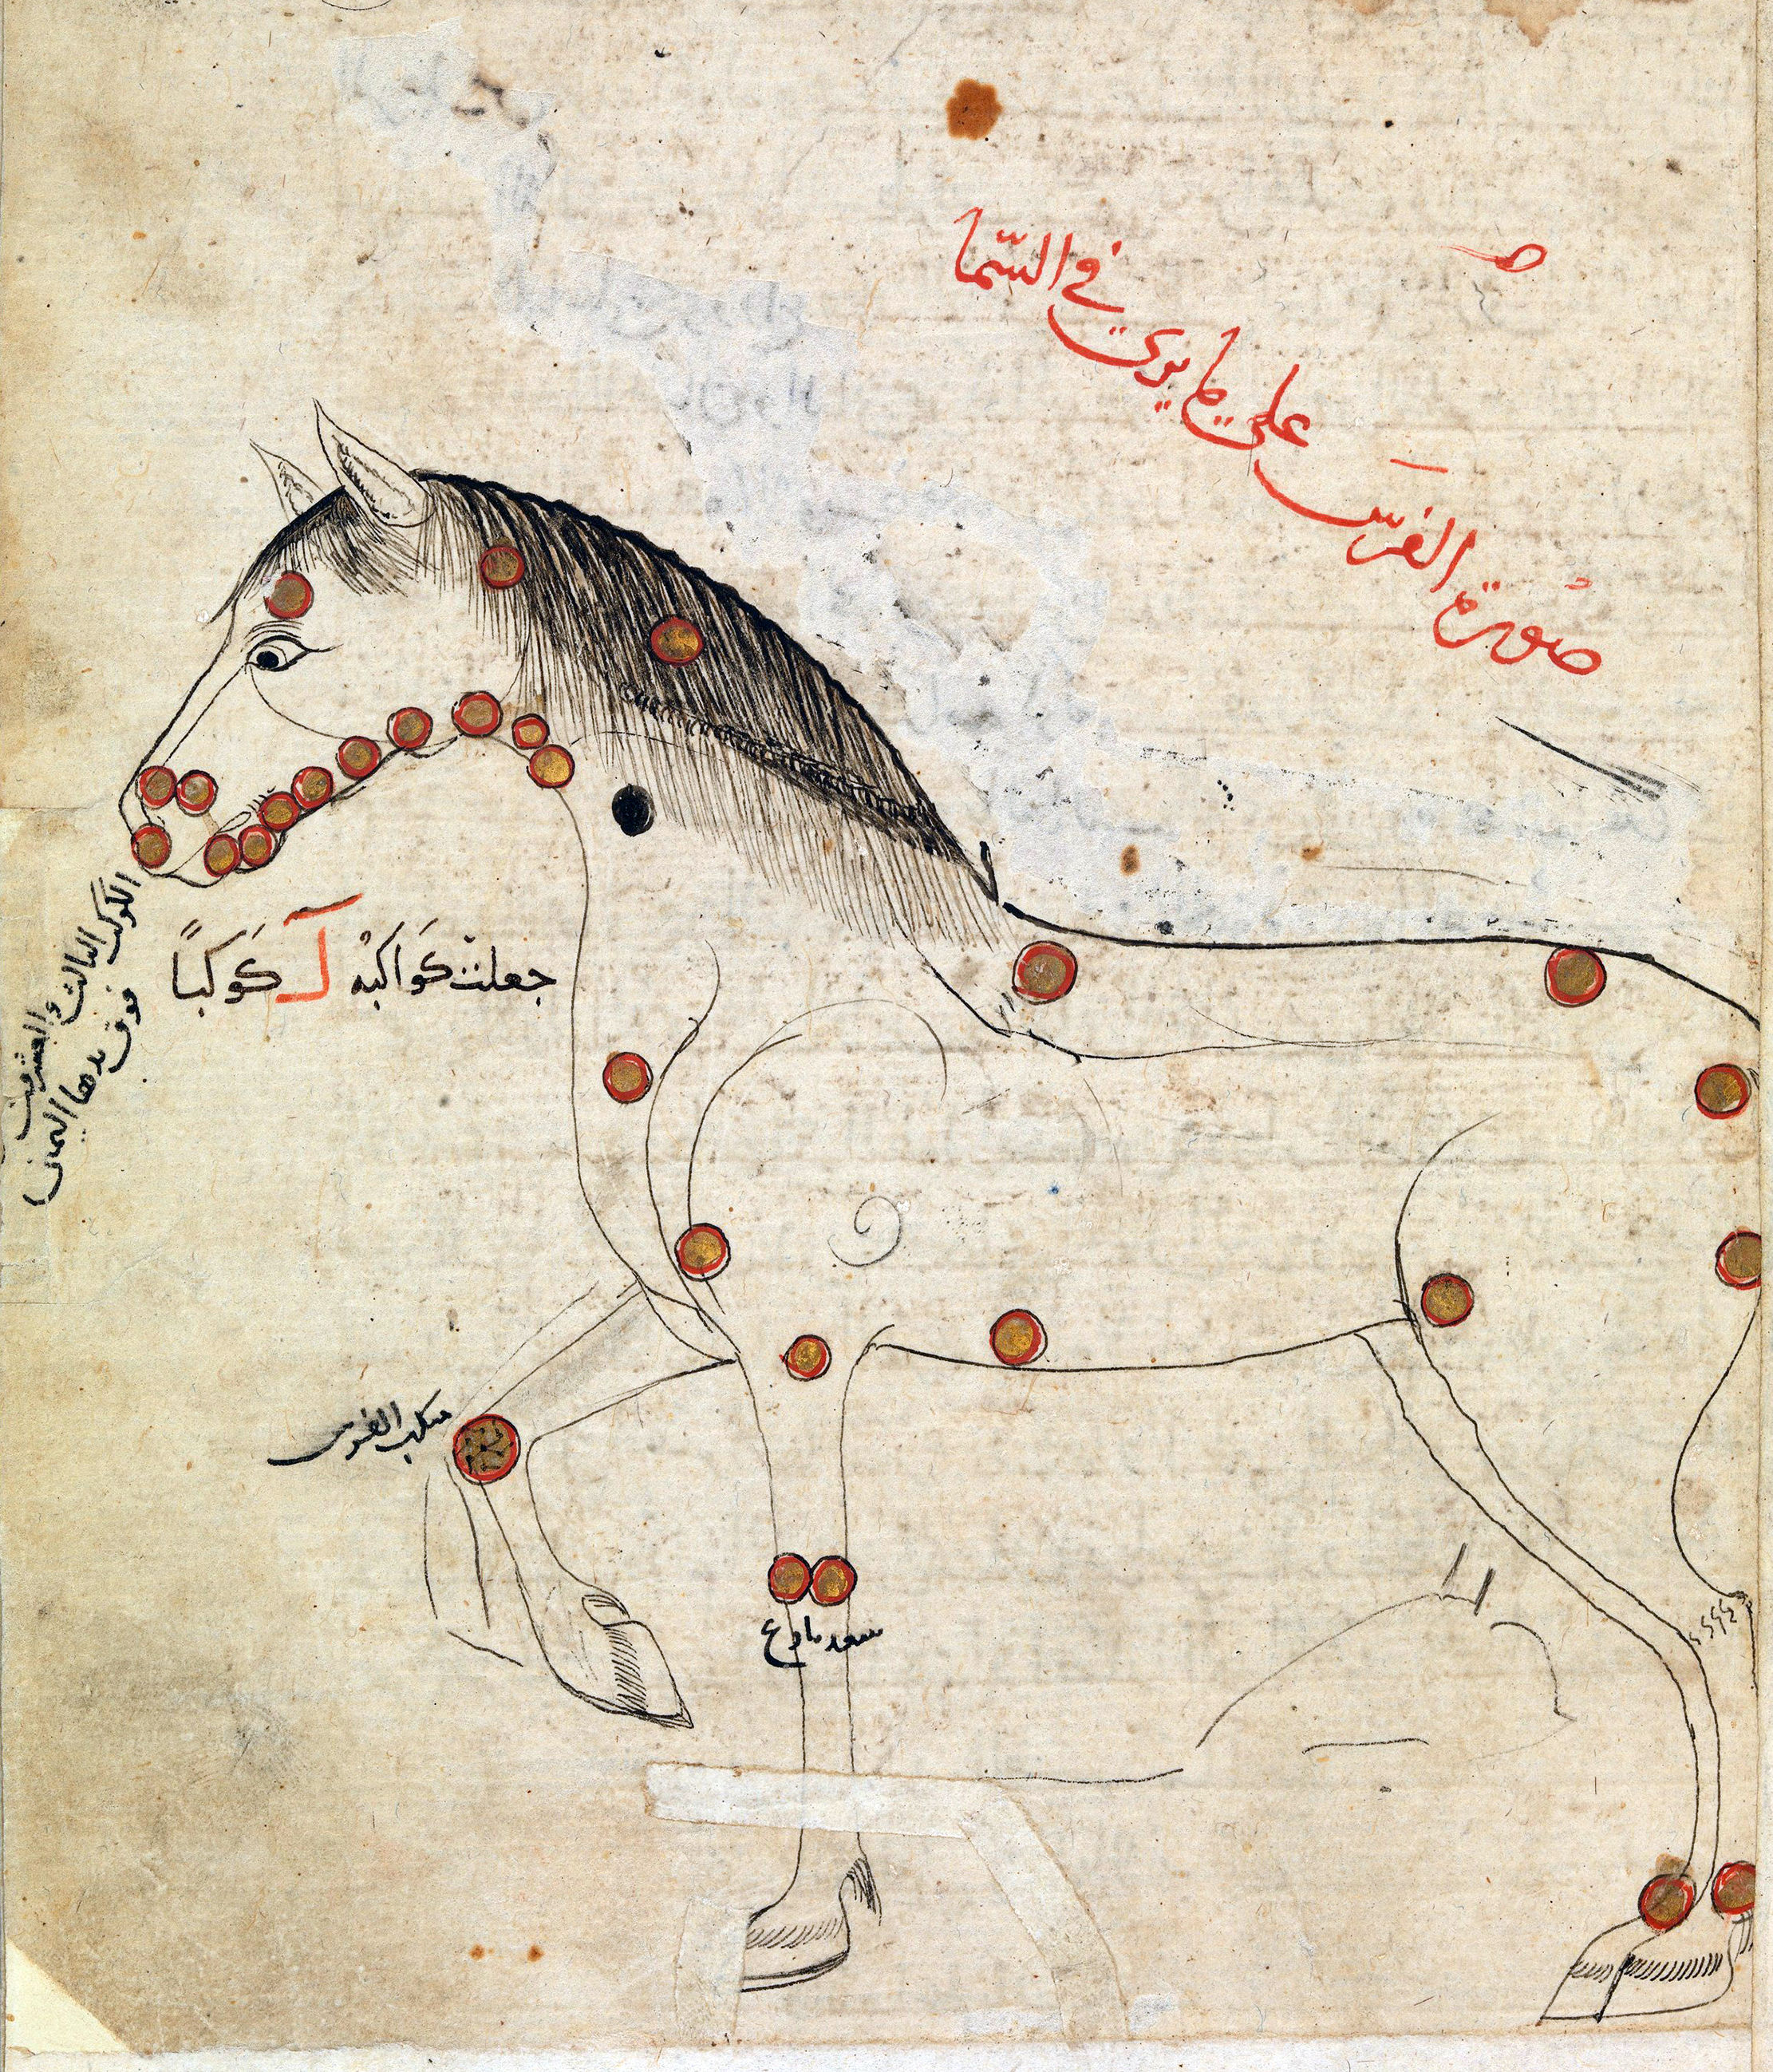 صُورة الفَرَس على ما يرى في السّما
جعلت كَواكبُه لَ كَوكبًا
الكوكب الثالث والعشرين
فوق يدها اليمنى
منكب الفرس
سعد بارع